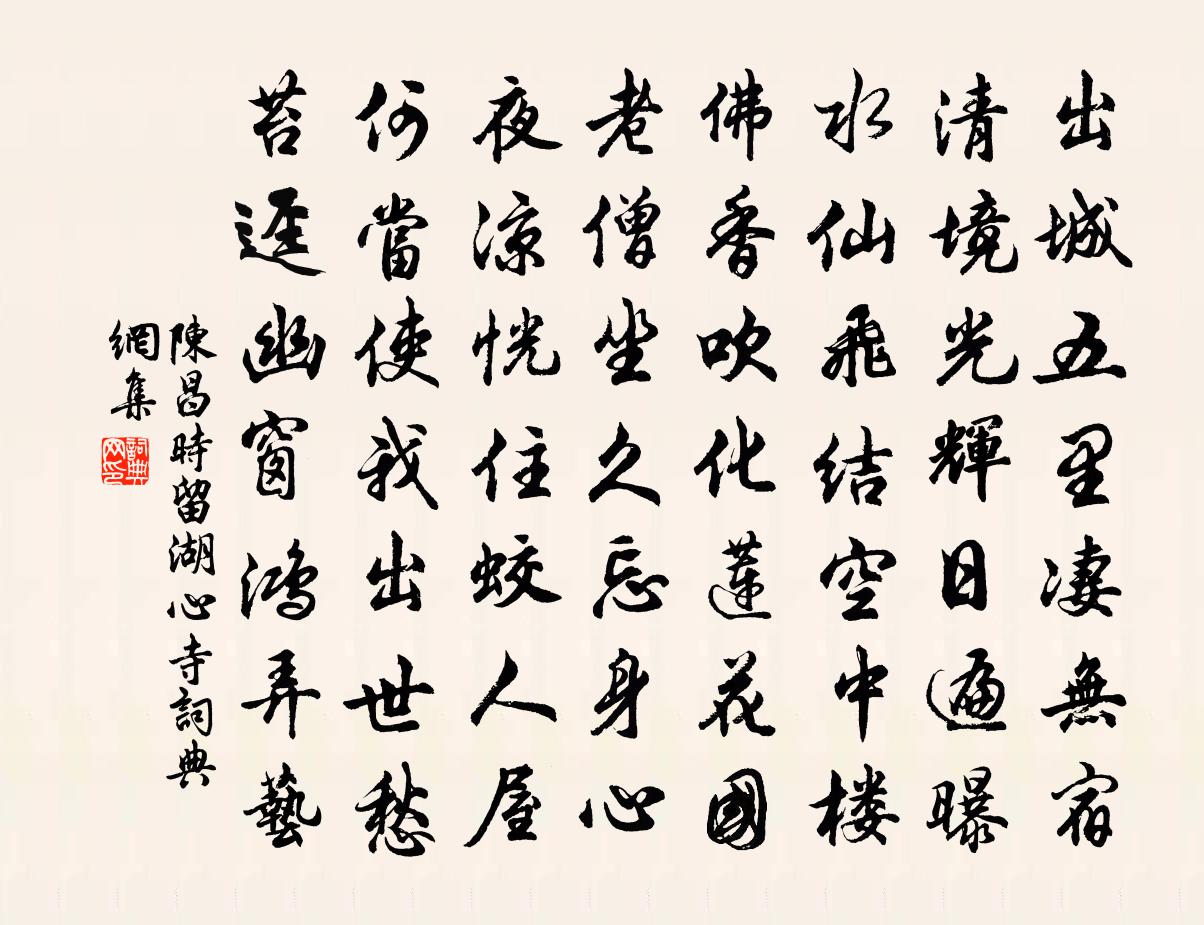 出城五里凄無宿
清境光輝日遍曝
水仙飛結空中楼
佛香吹化蓮花國
老僧坐久忘身心
夜涼恍住蛟人屋
何當使我出世愁
苔逕幽窗鴻弄藝
陳昌時留湖心寺詞典
網集
詞典网印